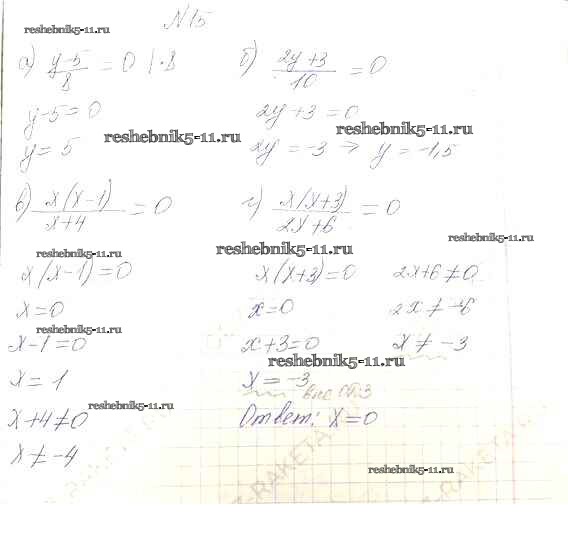 N 15
reshebnik5-11.ru
а) (y-5)/8 = 0 | ·8
y-5=0
reshebnik5-11.ru
y= 5
б) (2y+3)/10 = 0
reshebnik5-11.ru
2y+3=0
reshebnik5-11.ru
2y = -3 ⇒ y = -1,5
в) x(x-1)/(x+4) = 0
reshebnik5-11.ru
x(x-1)=0
x=0
reshebnik5-11.ru
x-1=0
x= 1
x+4≠0
reshebnik5-11.ru
x≠-4
г) x(x+3)/(2x+6) = 0
reshebnik5-11.ru
reshebnik5-11.ru
x(x+3)=0
2x+6≠0
x=0
2x≠-6
x+3=0
x≠-3
reshebnik5-11.ru
x=-3
Ответ: x=0
reshebnik5-11.ru